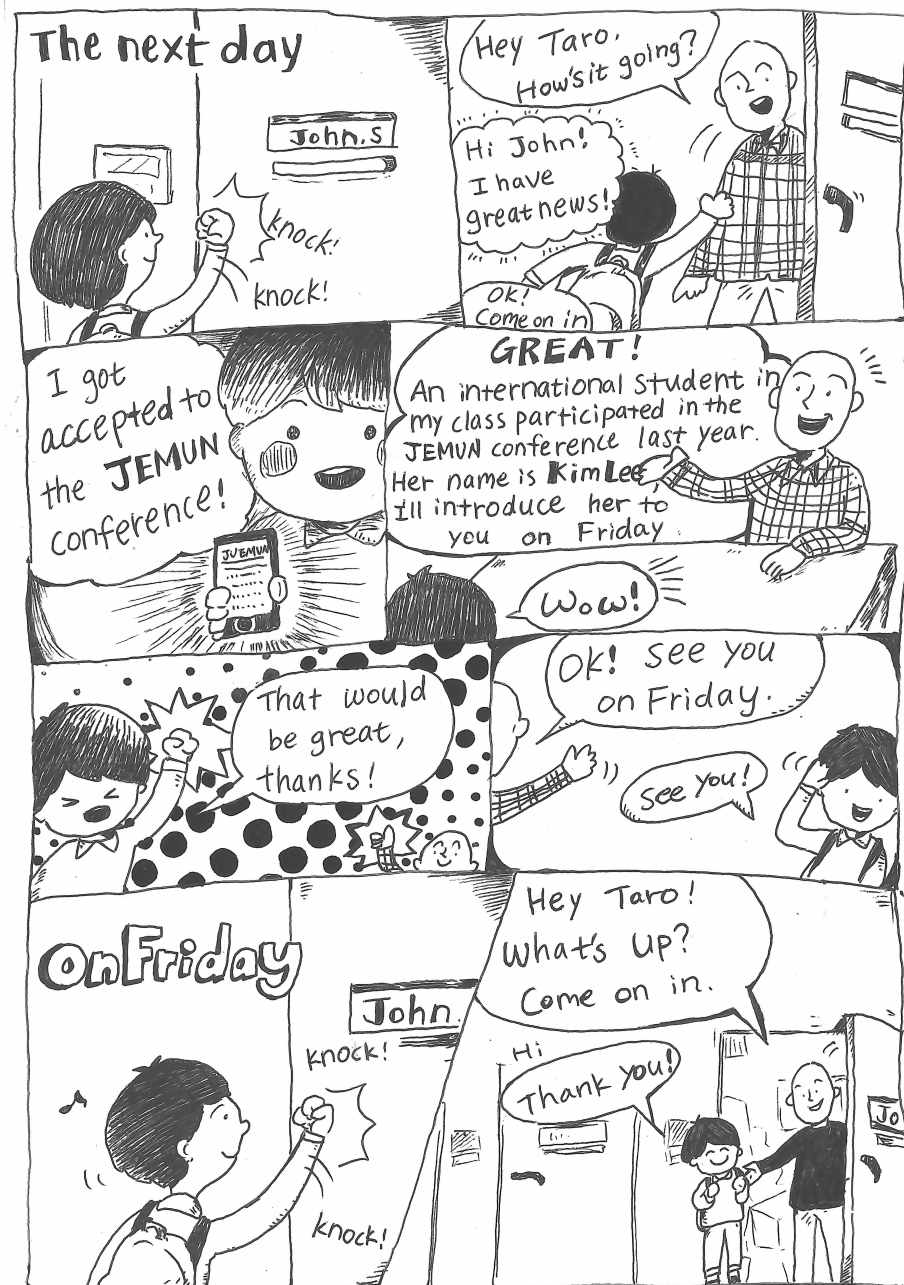 The next day
John.S
knock!
knock!
Hey Taro.
How's it going?
Hi John!
I have
great news!
OK!
Come on in
I got
accepted to
the JEMUN
conference!
JUEMUN
GREAT!
An international Student in
my class participated in the
JEMUN conference last year.
Her name is Kim Lee
I'll introduce her to
you on Friday.
Wow!
That would
be great,
thanks!
OK! See you
on Friday.
See you!
On Friday
John.
knock!
knock!
Hey Taro!
What's up?
Come on in.
Hi
Thank you!
Jo